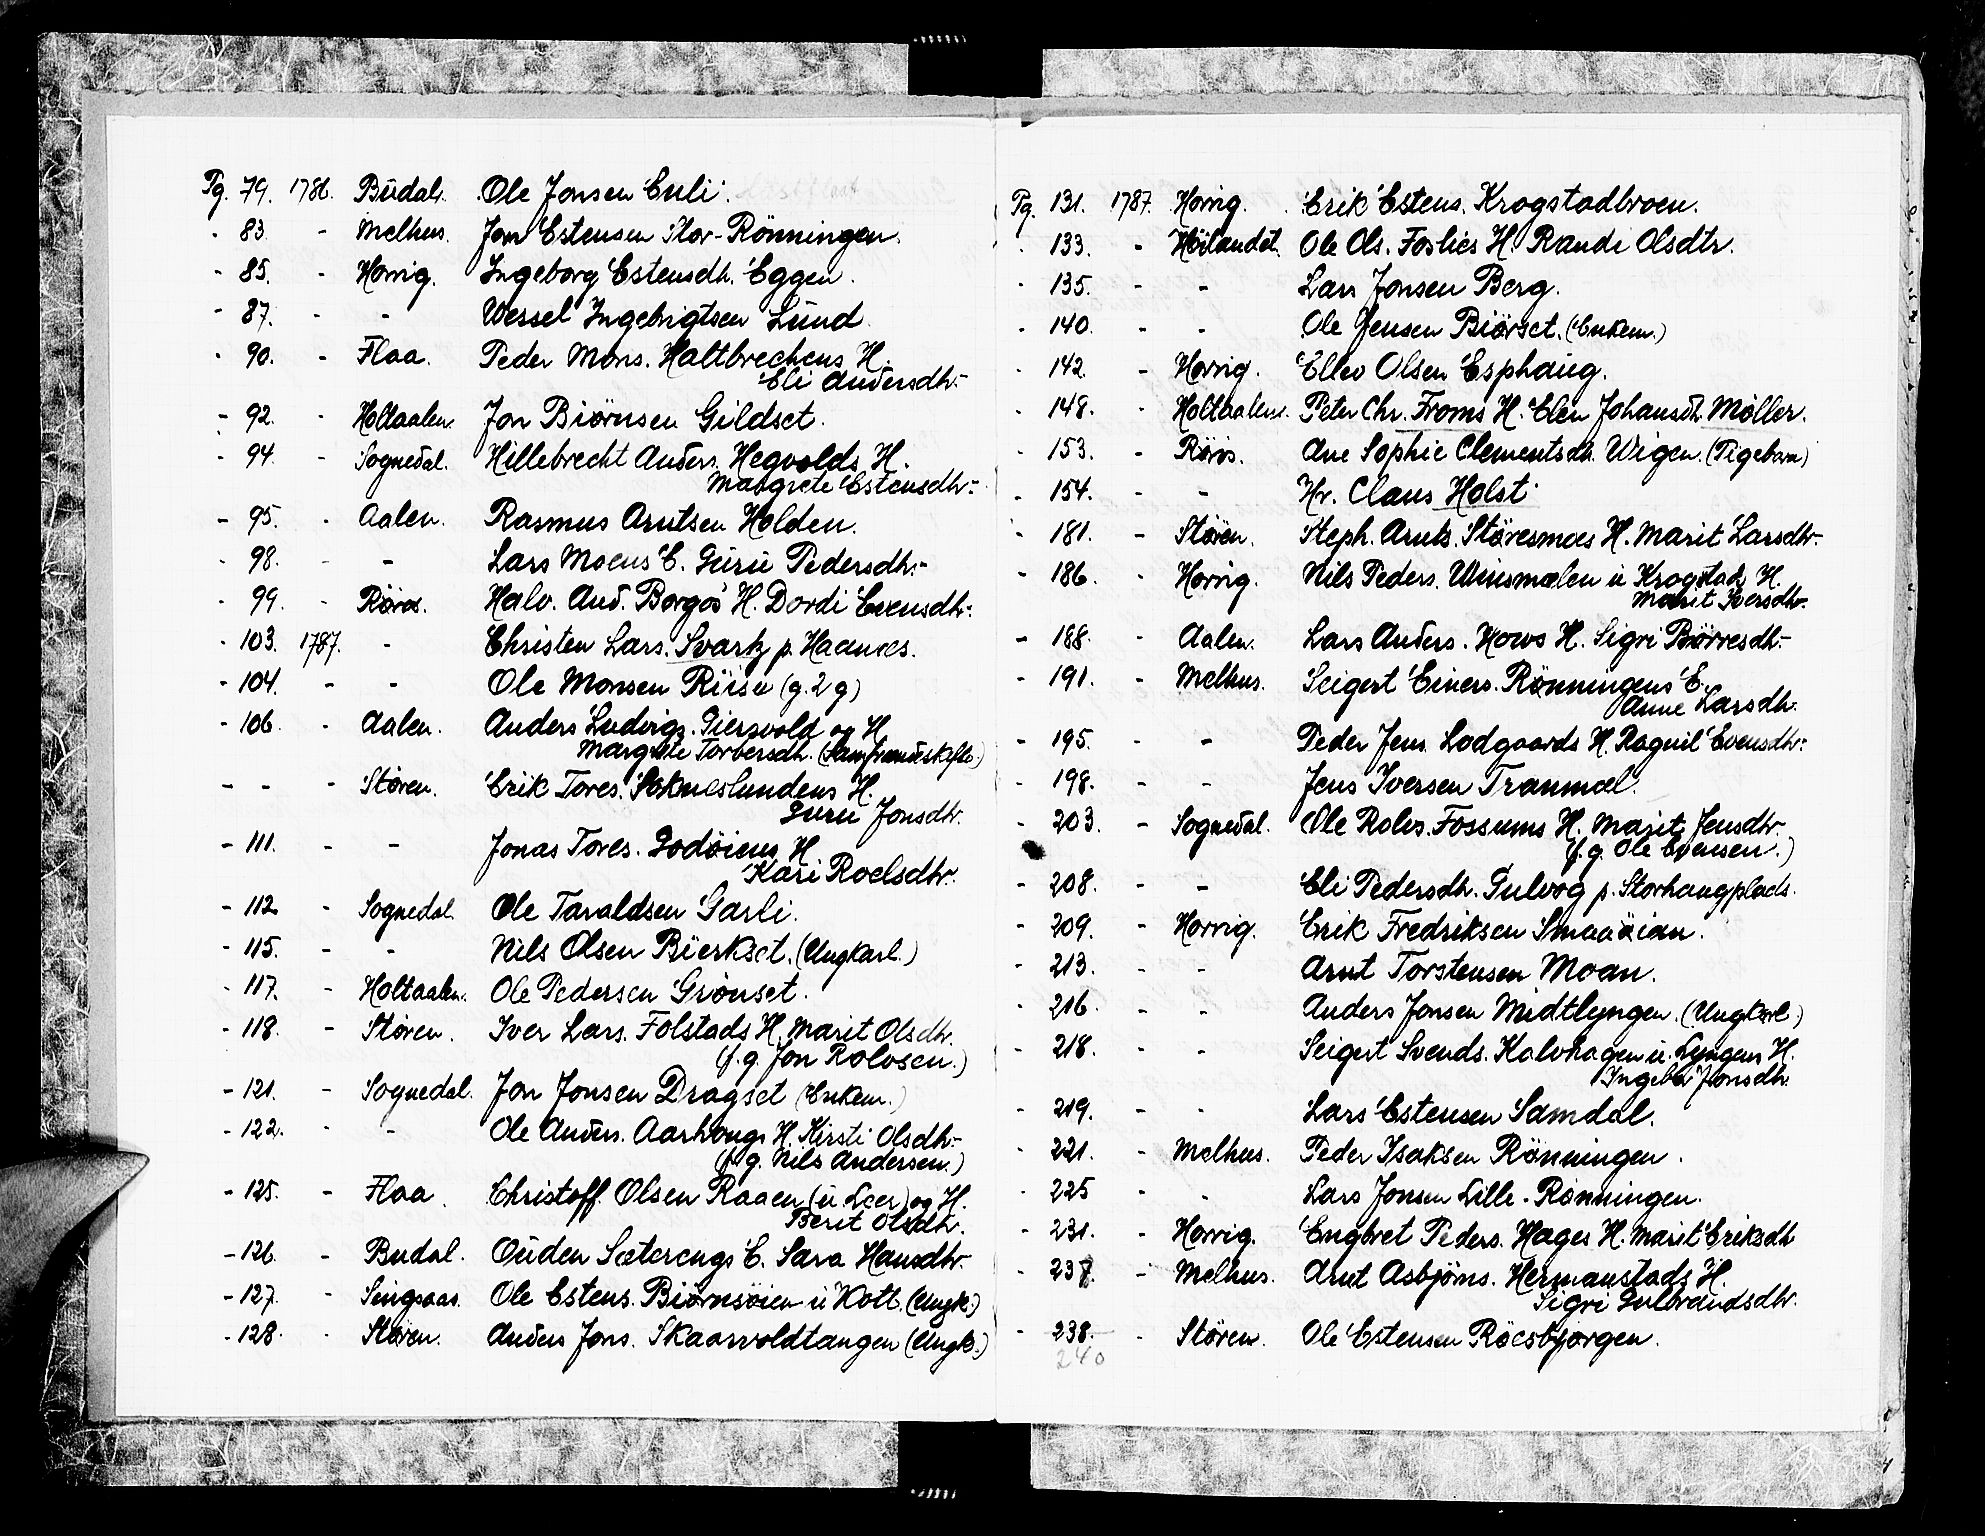 Pg. 79. 1786. Budal. Ole Jonsen Enli.
- 83. - Melhus. Jon Estensen Stor-Rönningen.
- 85. - Horrig. Ingeborg Estensdtr. Eggen.
- 87. - - Wessel Ingebrigtsen Lund.
- 90. - Flaa. Peder Mons. Haltbrechens H.
Eli Andersdtr.
- 92. - Holtaalen. Jon Biörnsen Gildset.
- 94. - Sognedal. Hillebrecht Anders. Hegvolds H.
Margrete Estensdtr.
- 95. - Aalen. Rasmus Arntsen Holden.
- 98. - - Lars Moens E. Guru Pedersdtr.
- 99. - Röros. Halv. And. Borgos H. Dordi Evensdtr.
- 103. 1787. - Christen Lars. Svartz p. Haanæs.
- 104. - - Ole Monsen Riise (g. 2 g)
- 106. - Aalen. Anders Ludvigs. Giersvold og H
Margrete Torbersdtr. (Samfrændskifte.)
- - - Støren. Erik Tores. Sokneslundens H.
Guru Jonsdtr.
- 111. - - Jonas Tores. Godøiens H.
Kari Roelsdtr.
- 112 - Sognedal. Ole Taraldsen Garli.
- 115. - - Nils Olsen Bierkset. (Ungkarl.)
- 117. - Holtaalen. Ole Pedersen Grönset.
- 118. - Støren. Iver Lars. Folstads H. Marit Olsdtr.
(f.g. Jon Rolvsen.)
- 121. - Sognedal. Jon Jonsen Dragset (Enkem.)
- 122. - - Ole Anders. Aarhaugs H. Kirsti Olsdtr.
(f.g. Nils Andersen.)
- 125. - Flaa. Christoff. Olsen Raaen (u. Leer) og H.
Berit Olsdtr.
- 126. - Budal. Ouden Sæterengs E. Sara Hansdtr.
- 127. - Singsaas. Ole Estens. Biørnsøien u Kott. (Ungk.)
- 128. - Støren. Anders Jons. Skaarvoldtangen (Ungk.)
Pg. 131. 1787. Horrig. Erik Estens. Krogstadbroen.
- 133. - Höilandet. Ole Ols. Foslies H. Randi Olsdtr.
- 135. - - Lars Jonsen Berg.
- 140. - - Ole Jensen Biørset. (Enkem.)
- 142. - Horrig. Ellev Olsen Esphaug.
- 148. - Holtaalen. Peter Chr. Froms H. Elen Johansdtr. Møller.
- 153. - Röros. Ane Sophie Clementsdtr. Wigen. (Pigebarn)
- 154. - - Hr. Claus Holst
- 181. - Støren. Steph. Arnts. Støresmoes H. Marit Larsdtr.
- 186. - Horrig. Nils Peders. Winsmælen u Krogstad H.
Marit Iversdtr.
- 188. - Aalen. Lars Anders. Hovs H. Sigri Börresdtr.
- 191. - Melhus. Seigert Einers. Rønningens E.
Anne Larsdtr.
- 195. - - Peder Jens. Lodgaards H. Ragnil Evensdtr.
- 198. - - Jens Iversen Tranmæl.
- 203. - Sognedal. Ole Rolvs. Fossums H. Marit Jensdtr.
(f.g. Ole Evensen.)
- 208. - - Eli Pedersdtr. Gulvog p. Storhaugplads.
- 209. - Horrig. Erik Fredriksen Smaaöian.
- 213. - - Arnt Torstensen Moan.
- 216. - - Anders Jonsen Midtlyngen. (Ungkarl.)
- 218. - - Seigert Svends. Kalvhagen u. Lyngens H.
Ingebor Jonsdtr.
- 219. - - Lars Estensen Samdal.
- 221. - Melhus. Peder Isaksen Rönningen.
- 225 - - Lars Jonsen Lille-Rønningen.
- 231. - Horrig. Engbret Peders. Hages H. Marit Eriksdtr
- 237. - Melhus. Arnt Asbjörns. Hermanstads H.
Sigri Gulbrandsdtr.
- 238. - Støren. Ole Estensen Röesbjorgen.
240